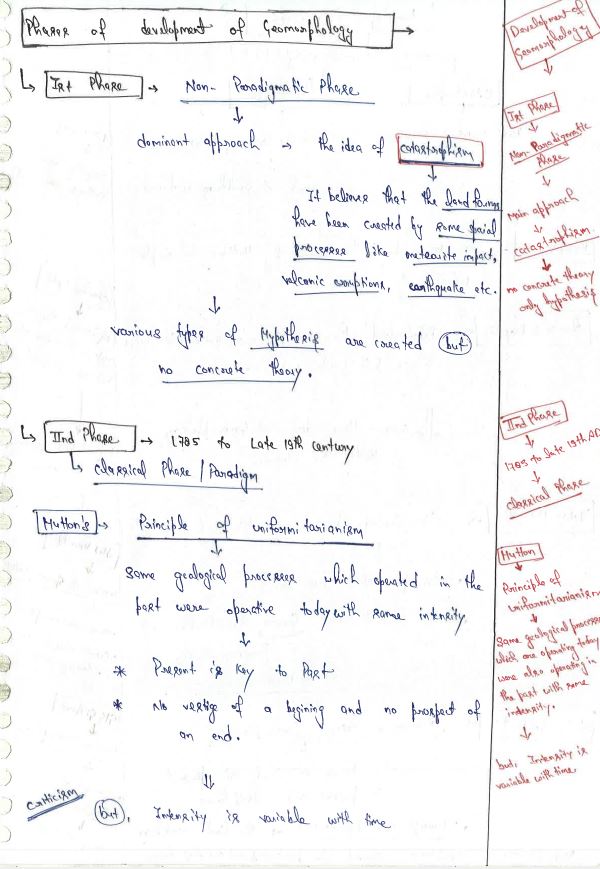 Phases of development of Geomorphology →
↳ Ist Phase → Non-Paradigmatic Phase
↓
dominant approach → the idea of catastrophism
↓
It believes that the land forms
have been created by some special
processes like meteorite impact,
valconic erruptions, earthquake etc.
↓
various types of Hypothesis are created but
no concrete theory.
↳ IInd Phase → 1785 to Late 19th century
↳ Classical Phase / Paradigm
Hutton's → Principle of uniformitarianism
↓
Same geological processes which operated in the
past were operative today with same intensity
↓
* Present is Key to Past
* No vestige of a begining and no prospect of
an end.
⇓
criticism
but, Intensity is variable with time
Development of
Geomorphology
↓
Ist Phase
↓
Non-Paradigmatic
Phase
↓
main approach
↓
catastrophism
↓
no concrete theory
only hypothesis
IInd Phase
↓
1785 to late 19th AD
↓
classical Phase
Hutton
↓
Principle of
uniformitarianism
↓
Same geological processes
which are operating today
were also operating in
the past with same
intensity.
↓
but, Intensity is
variable with time.